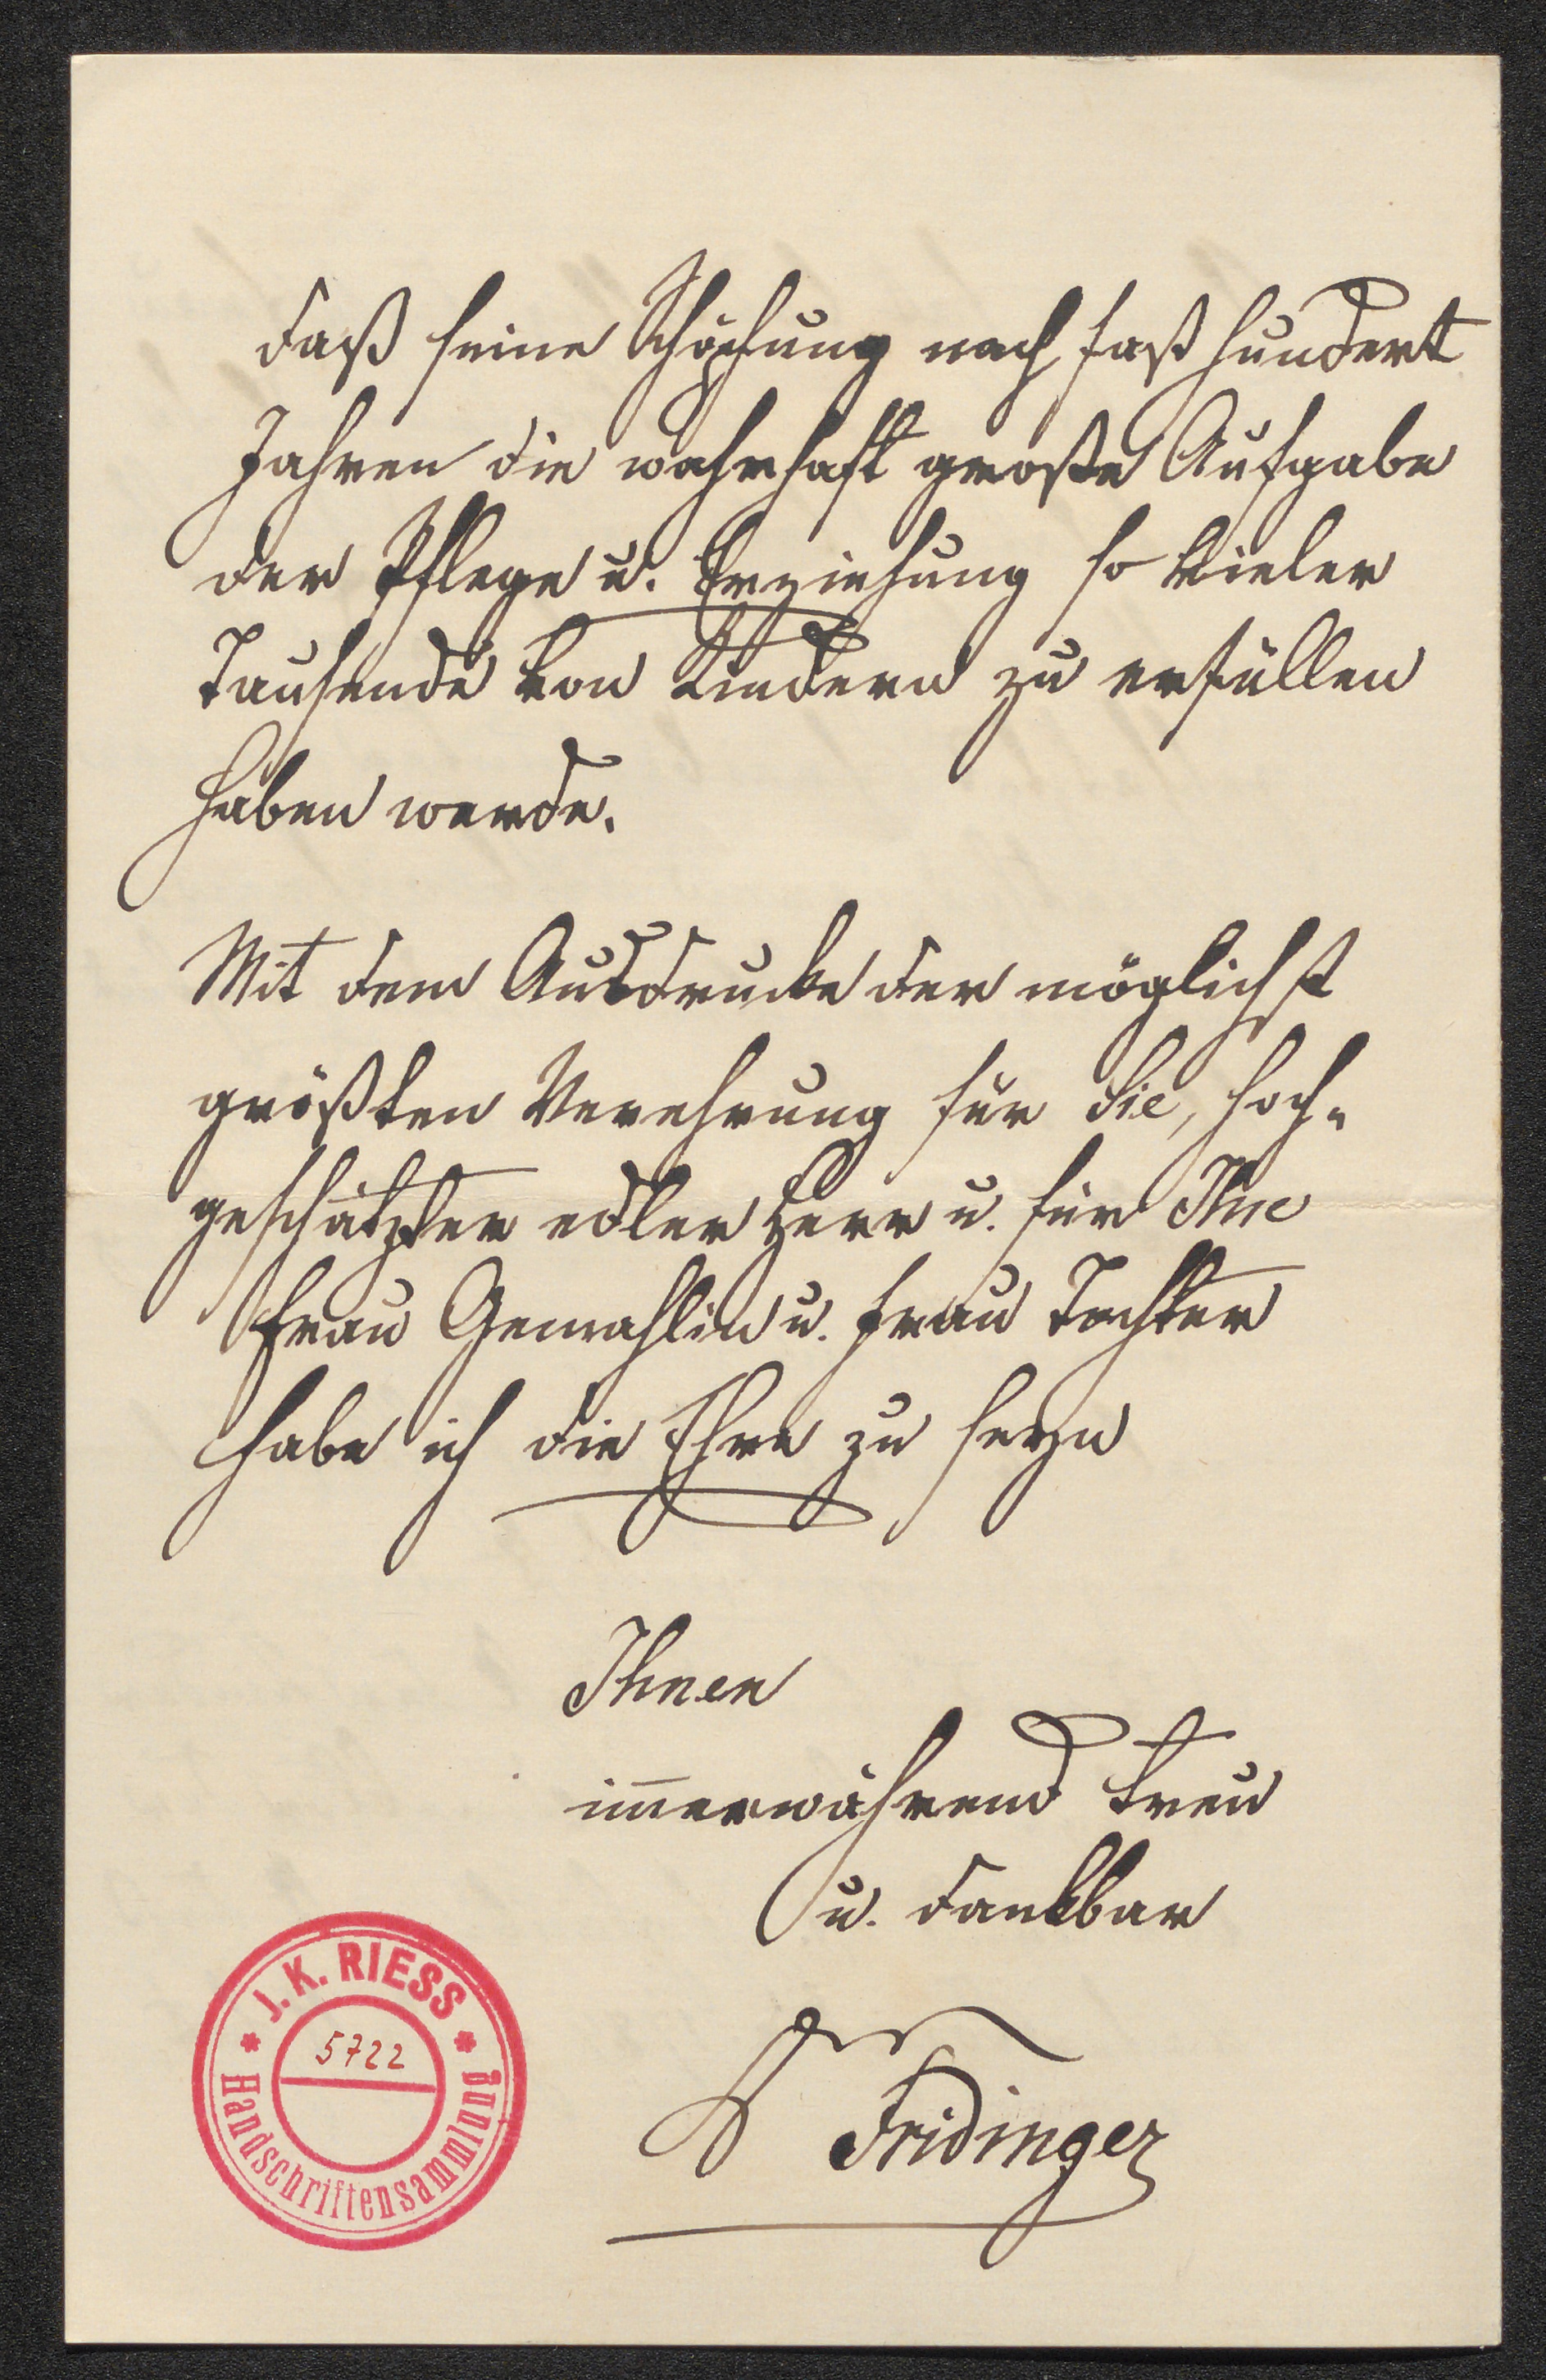 daß seine Schöpfung nach fast hundert
Jahren die wahrhaft große Aufgabe
der Pflege u. Erziehung so vieler
Tausende von Kindern zu erfüllen
haben werde.
Mit dem Ausdrucke der möglichst
größten Verehrung für Sie, hoch-
geschätzter edler Herr u. für Ihre
Frau Gemahlin u. Frau Tochter
habe ich die Ehre zu seyn
Ihnen
im̅erwährend treu
u. dankbar
Fridinger
J. K. RIESS
5722
Handschriftensammlung